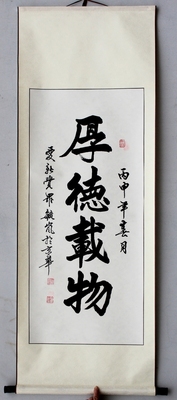 丙申年春月
厚德載物
愛新覺羅毓嵐於京華